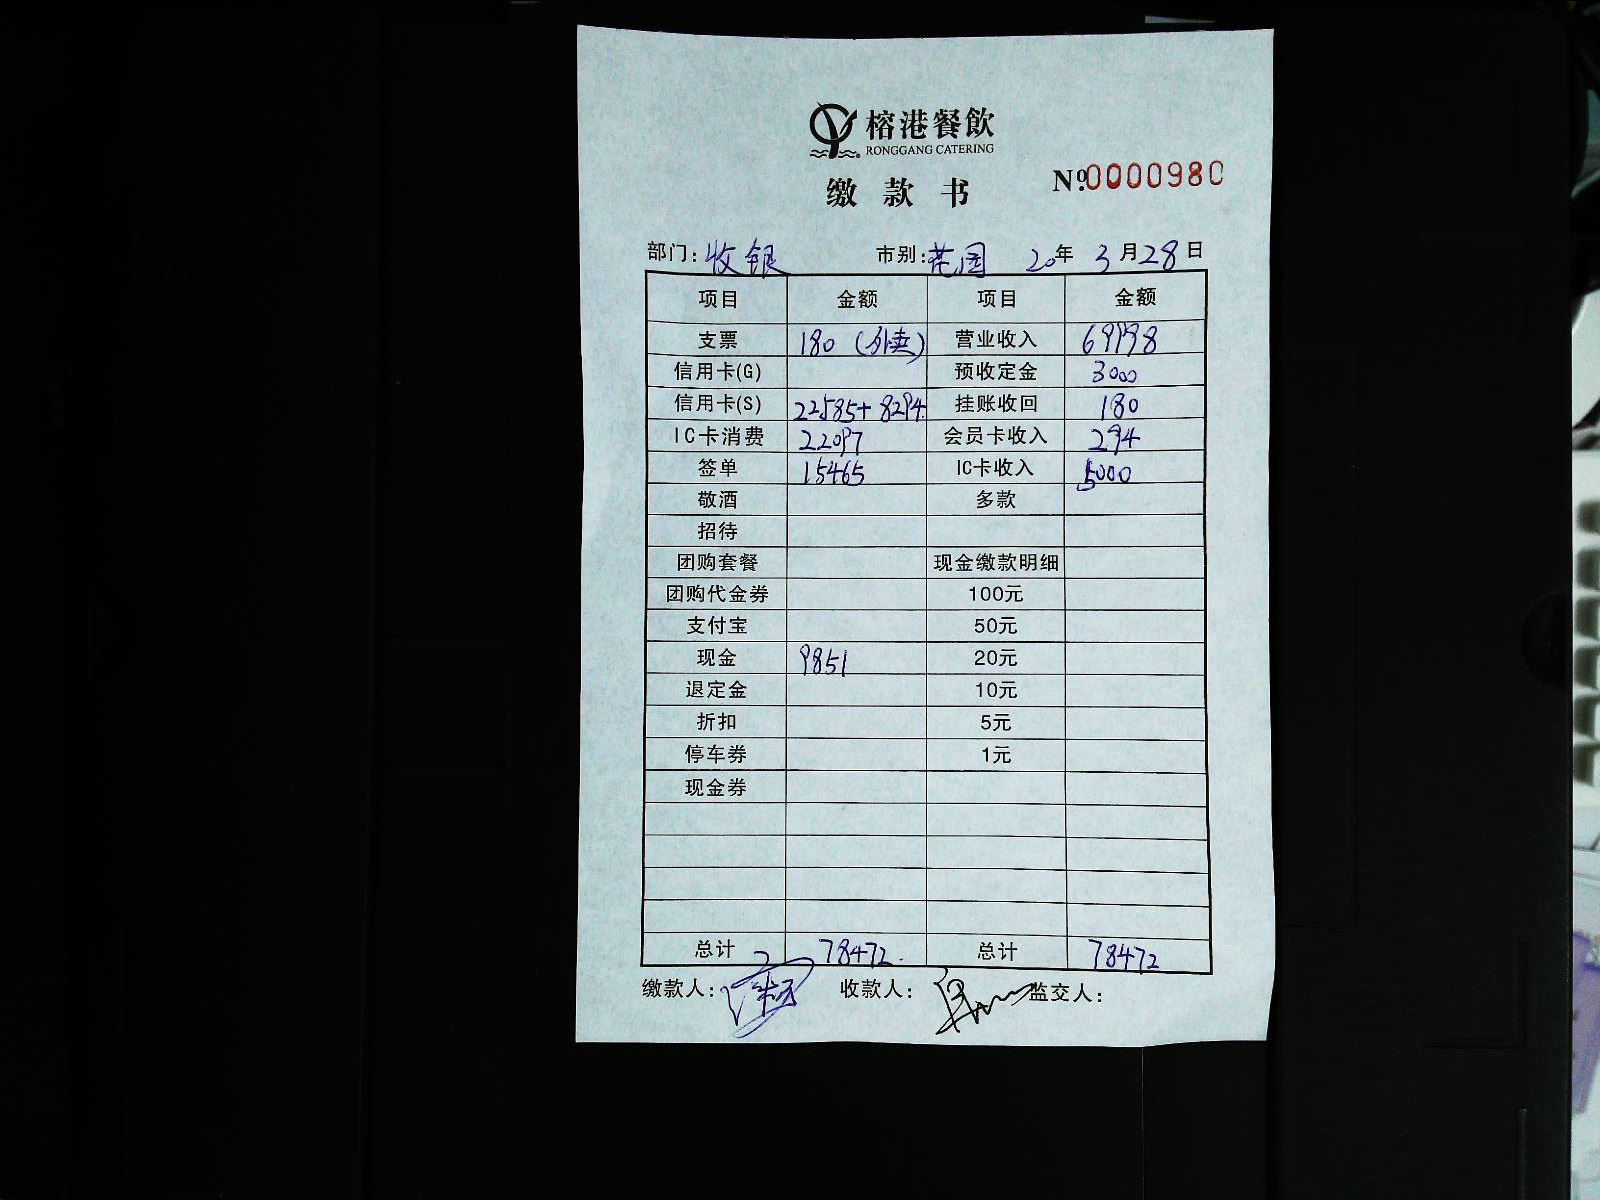 榕港餐飲
RONGGANG CATERING
缴款书 Nº.0000980
部门：收银 市别：花园 20年 3月28日
项目 金额 项目 金额
支票 180（外卖） 营业收入 69998
信用卡(G) 预收定金 3000
信用卡(S) 22585+8294 挂账收回 180
IC卡消费 22097 会员卡收入 294
签单 15465 IC卡收入 5000
敬酒 多款
招待
团购套餐 现金缴款明细
团购代金券 100元
支付宝 50元
现金 9851 20元
退定金 10元
折扣 5元
停车券 1元
现金券
总计 78472. 总计 78472
缴款人： 收款人： 监交人：